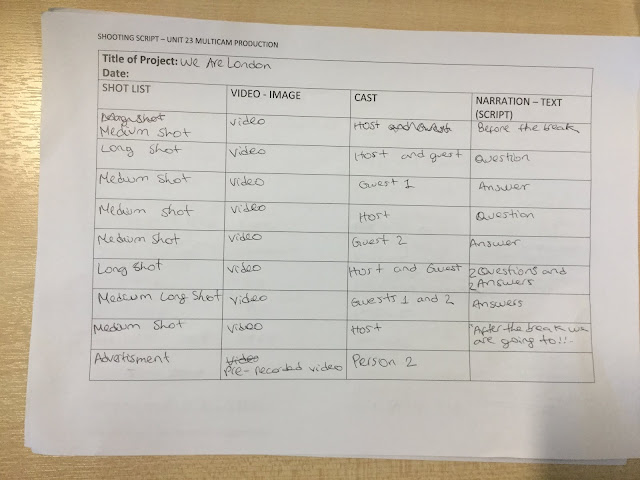 SHOOTING SCRIPT – UNIT 23 MULTICAM PRODUCTION
Title of Project: We Are London
Date:
SHOT LIST VIDEO - IMAGE CAST NARRATION – TEXT
(SCRIPT)
Medium Shot video Host Before the break
Long Shot video Host and guest Question
Medium Shot video Guest 1 Answer
Medium Shot video Host Question
Medium Shot video Guest 2 Answer
Long Shot video Host and Guest 2 Questions and
2 Answers
Medium Long Shot video Guests 1 and 2 Answers
Medium Shot video Host "After the break we
are going to!!..
Advertisment Video Person 2
Pre-recorded video